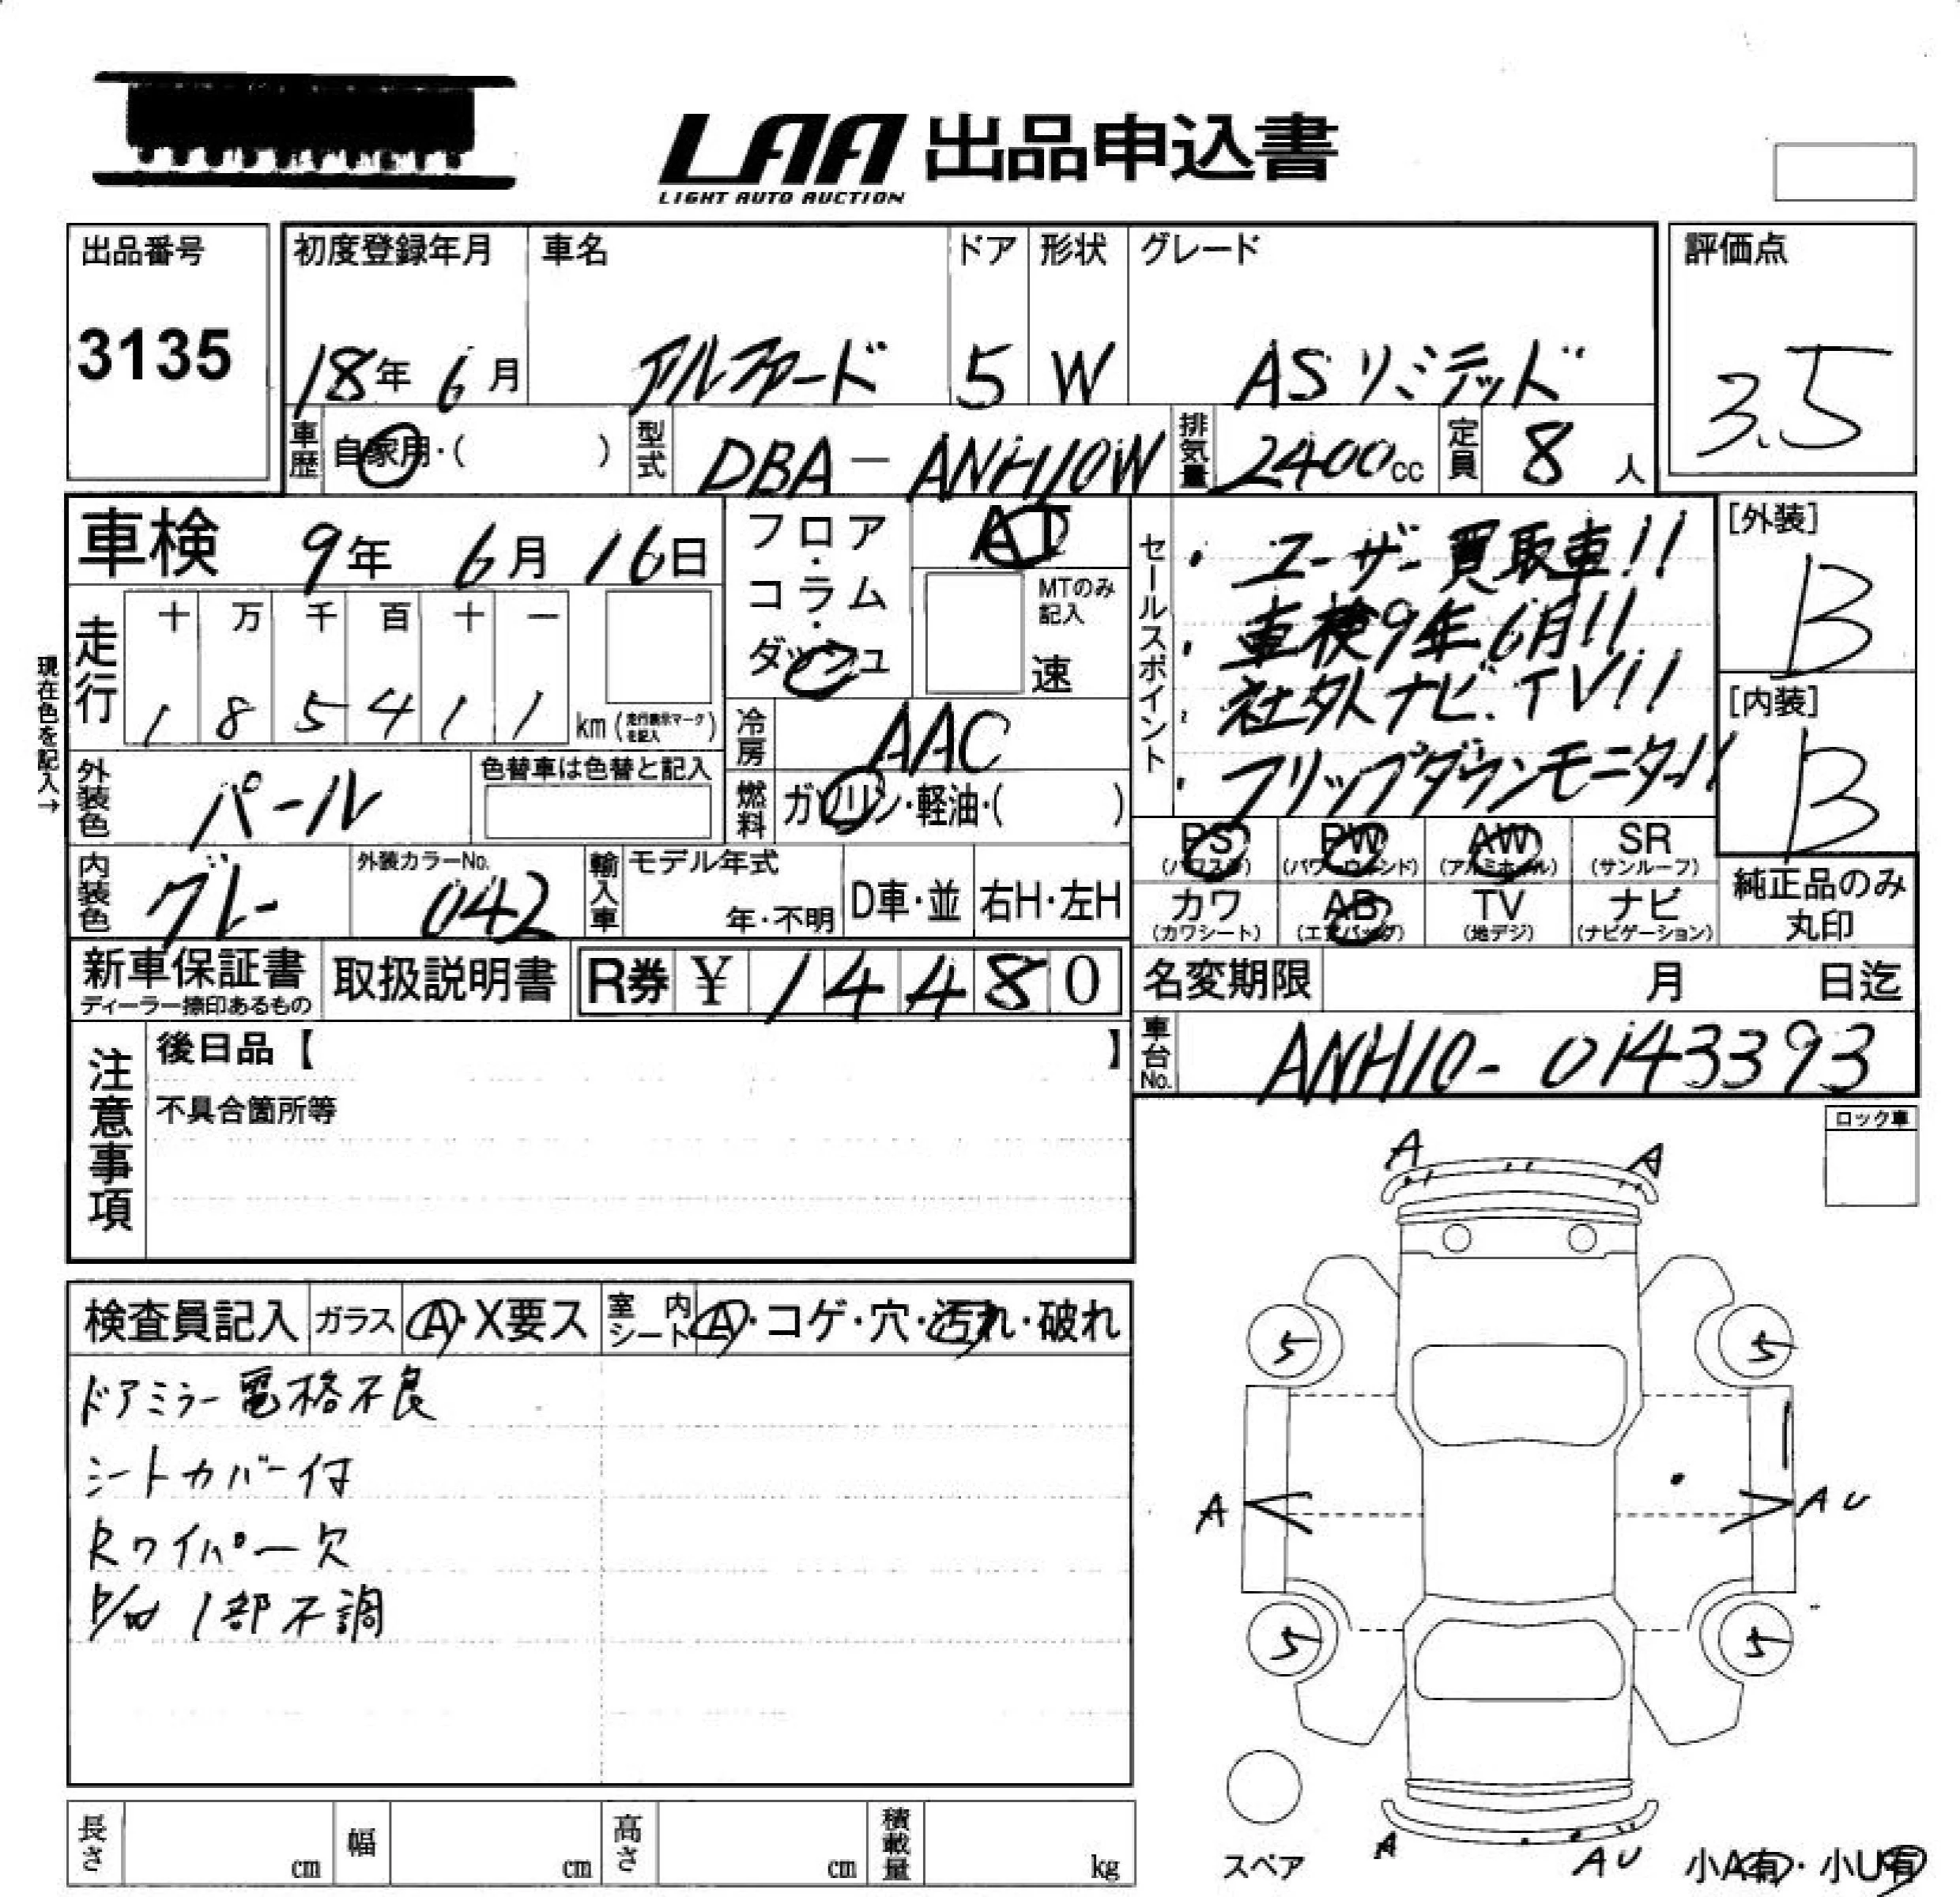 LAA 出品申込書
LIGHT AUTO AUCTION
出品番号
3135
初度登録年月
18年 6月
車名
アルファード
ドア
5
形状
W
グレード
ASリミテッド
評価点
3.5
車歴
自家用・( )
型式
DBA-ANH10W
排気量
2400cc
定員
8人
車検 9年 6月 16日
フロア・コラム・ダッシュ
AT
MTのみ記入
速
セールスポイント
・ユーザー買取車!!
・車検9年6月!!
・社外ナビ、TV!!
・フリップダウンモニター!!
[外装]
B
[内装]
B
現在色を記入→
走行
十 万 千 百 十 一
1 8 5 4 1 1 km (走行表示マークを記入)
冷房
AAC
外装色
パール
色替車は色替と記入
燃料
ガソリン・軽油・( )
PS (パワステ)
PW (パワーウィンド)
AW (アルミホイール)
SR (サンルーフ)
カワ (カワシート)
AB (エアバッグ)
TV (地デジ)
ナビ (ナビゲーション)
純正品のみ丸印
内装色
グレー
外装カラーNo.
042
輸入車
モデル年式
年・不明
D車・並
右H・左H
新車保証書
ディーラー捺印あるもの
取扱説明書
R券 ¥ 14480
名変期限 月 日迄
車台No.
ANH10-0143393
注意事項
後日品【 】
不具合箇所等
ロック車
検査員記入
ガラス
A・X要ス
室内シート
A・コゲ・穴・汚れ・破れ
ドアミラー電格不良
シートカバー付
Rワイパー欠
P/W 1部不調
A A
5 5
A AU
5 5
A AU
スペア
小A有・小U有
長さ cm
幅 cm
高さ cm
積載量 kg